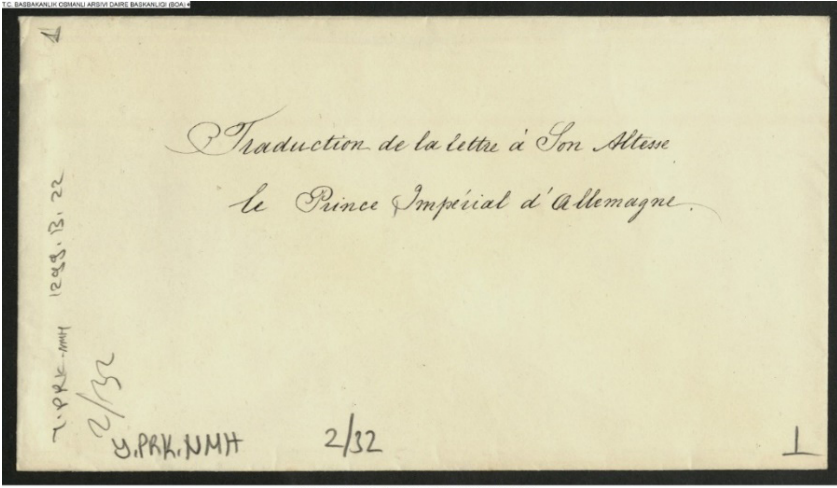 T.C. BASBAKANLIK OSMANLI ARSIVI DAIRE BASKANLIGI (BOA)
1
Traduction de la lettre à Son Altesse
le Prince Impérial d'Allemagne.
Y.PRK.NMH 1299.B.22
2/32
Y.PRK.NMH 2/32
1